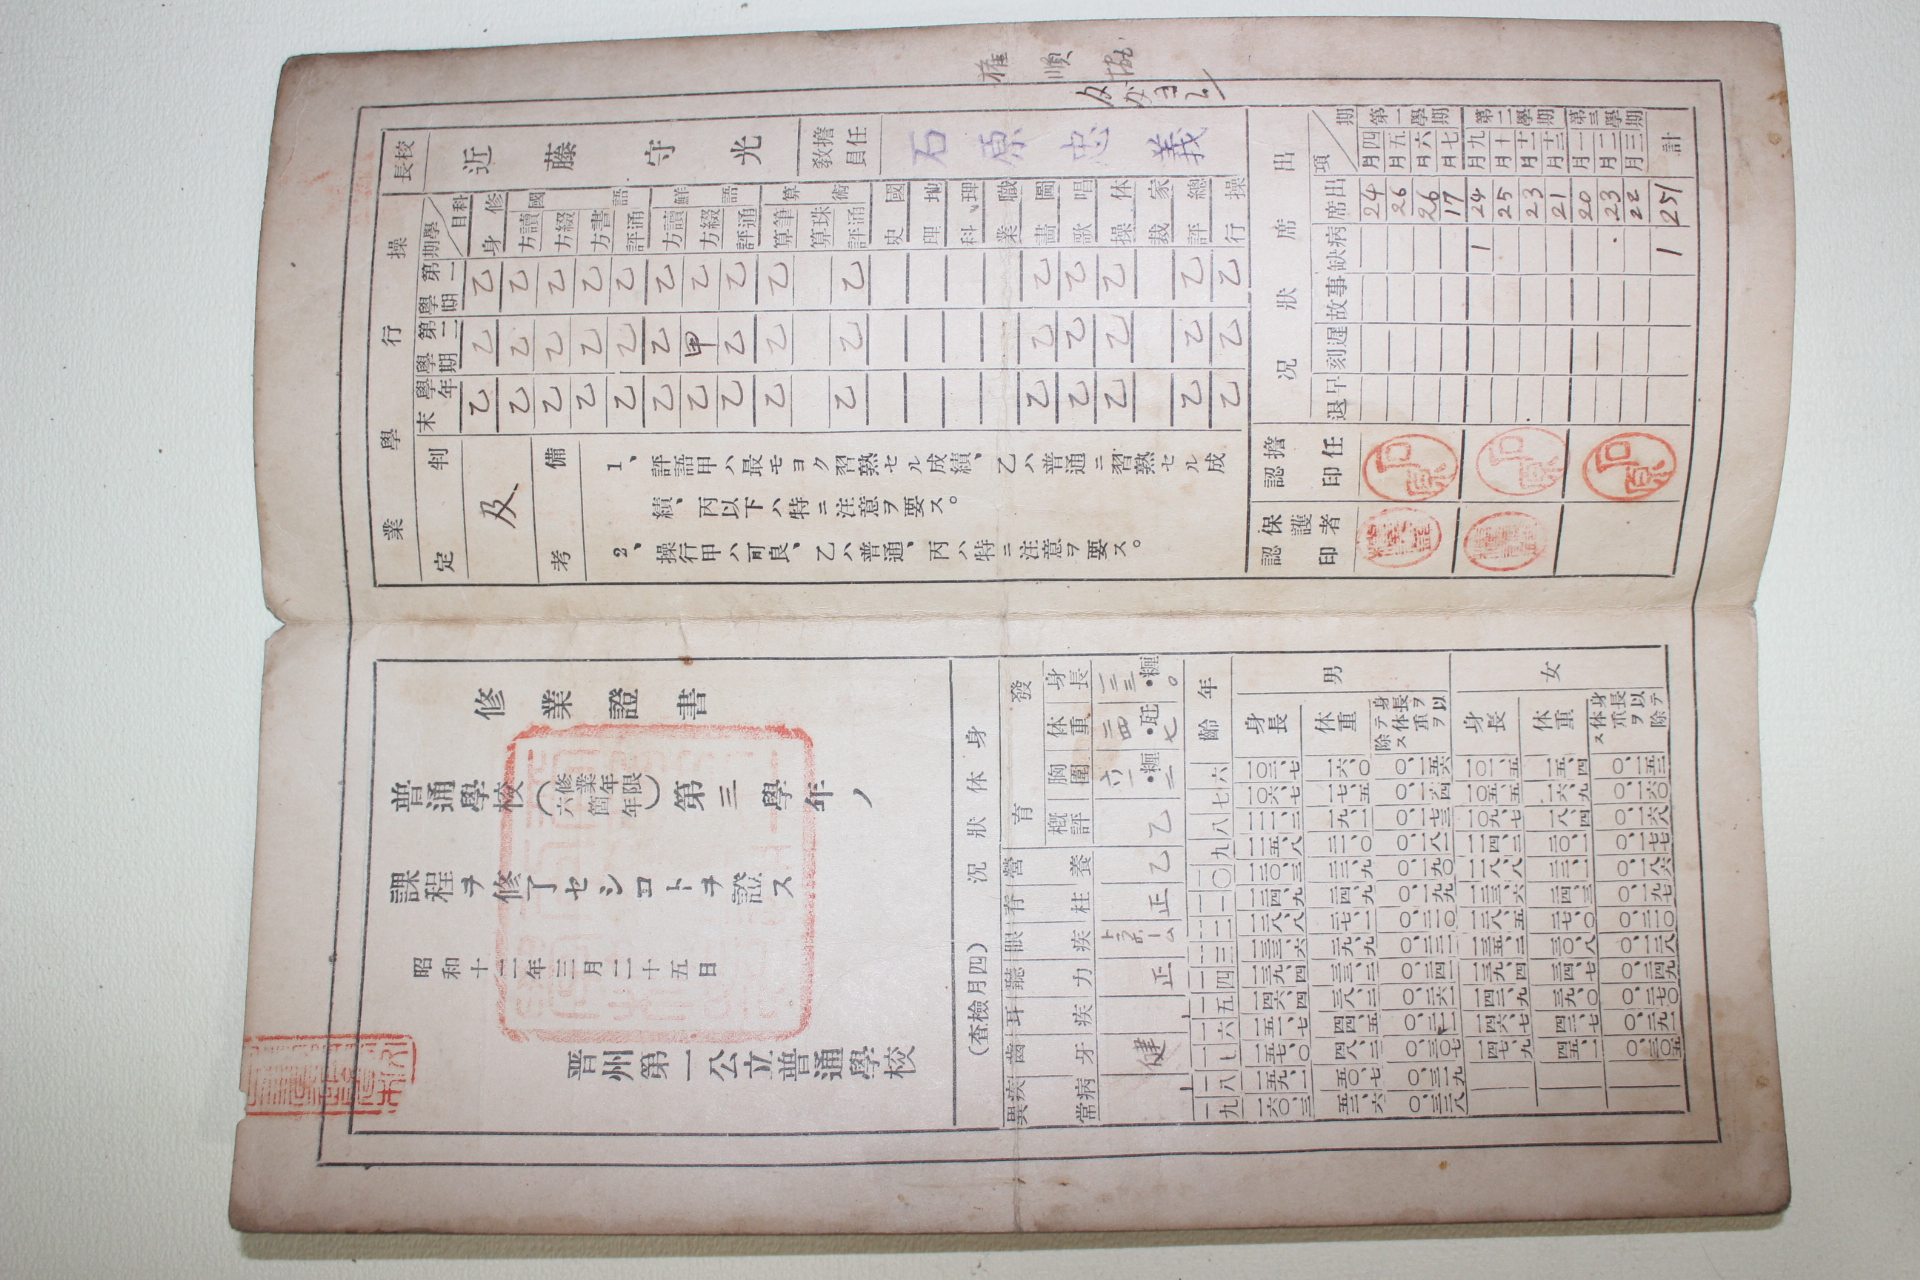 校長
近藤守光
擔任教員
石原忠義
操行學業
學期
科目
第一學期
第二學期
學年末
判定
及
備考
1、評語甲ハ最モヨク習熟セル成績、乙ハ普通ニ習熟セル成
績、丙以下ハ特ニ注意ヲ要ス。
2、操行甲ハ可良、乙ハ普通、丙ハ特ニ注意ヲ要ス。
修身 乙 乙 乙
國語
讀方 乙 乙 乙
綴方 乙 乙 乙
書方 乙 乙 乙
通評 乙 乙 乙
鮮語
讀方 乙 乙 乙
綴方 乙 甲 乙
通評 乙 乙 乙
算術
筆算 乙 乙 乙
珠算
通評 乙 乙 乙
國史
地理
理科
職業
圖畵 乙 乙 乙
唱歌 乙 乙 乙
体操 乙 乙 乙
家裁
總評 乙 乙 乙
操行 乙 乙 乙
出席狀况
期
項
出席
病缺
事故
遲刻
早退
第一學期
四月 24
五月 26
六月 26
七月 17
第二學期
九月 24 1
十月 25
十一月 23
十二月 21
第三學期
一月 20
二月 23
三月 22
計 251 1
擔任認印
石原
石原
石原
保護者認印
權順
修業證書
普通學校(修業年限六箇年)第三學年ノ
課程ヲ修了セシコトヲ證ス
昭和十二年三月二十五日
晋州第一公立普通學校
身体狀况(四月檢査)
發育
身長 一三三糎〇
体重 二四瓩七
胸圍 六一糎二
槪評 乙
營養 乙
脊柱 正
眼疾 トラホーム
聽力 正
耳疾
齒牙 健
疾病異常
年齡
六
七
八
九
一〇
一一
一二
一三
一四
一五
一六
一七
一八
一九
男
身長
一〇二、七
一〇六、七
一一一、二
一一五、八
一二〇、三
一二四、九
一二八、八
一三三、六
一三九、四
一四六、四
一五一、七
一五七、〇
一五九、一
一六〇、三
体重
一六、〇
一七、五
一九、一
二一、〇
二二、九
二四、九
二七、一
二九、九
三三、二
三八、二
四四、五
四八、二
五〇、七
五二、六
身長ヲ以テ体重ヲ除ス
〇、一五六
〇、一六四
〇、一七三
〇、一八一
〇、一九〇
〇、一九九
〇、二一〇
〇、三〇七
〇、三一九
〇、三二八
女
身長
一〇一、五
一〇五、五
一〇九、七
一一四、二
一一八、八
一二三、六
一二八、五
一三五、二
一三九、四
一四二、九
一四六、七
一四七、九
体重
一五、四
一六、九
一八、四
二〇、一
二二、一
二四、三
二七、〇
三〇、八
三四、七
三九、〇
四二、七
四五、一
身長以テ体重ヲ除ス
〇、一五二
〇、一六〇
〇、一六八
〇、一七七
〇、一八六
〇、一九七
〇、二一〇
〇、二二八
〇、二四九
〇、二七〇
〇、二九一
〇、三〇五